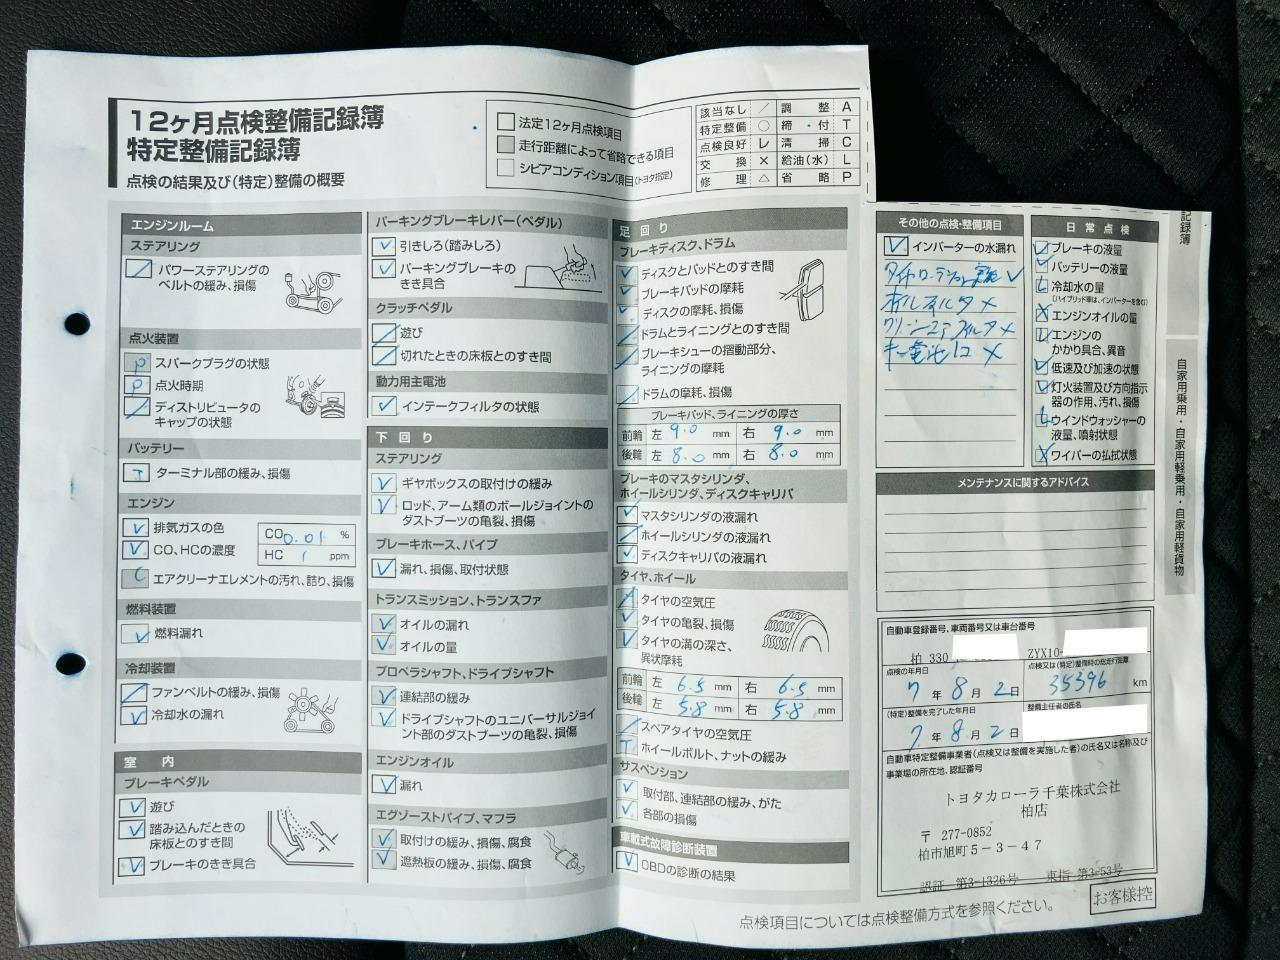 12ヶ月点検整備記録簿
特定整備記録簿
点検の結果及び(特定)整備の概要
法定12ヶ月点検項目
走行距離によって省略できる項目
シビアコンディション項目(トヨタ指定)
該当なし ／ 調整 A
特定整備 ○ 締・付 T
点検良好 レ 清掃 C
交換 × 給油(水) L
修理 △ 省略 P
エンジンルーム
ステアリング
パワーステアリングの
ベルトの緩み、損傷
点火装置
P スパークプラグの状態
P 点火時期
ディストリビュータの
キャップの状態
バッテリー
T ターミナル部の緩み、損傷
エンジン
排気ガスの色
CO、HCの濃度
CO 0.01 %
HC 1 ppm
C エアクリーナエレメントの汚れ、詰り、損傷
燃料装置
燃料漏れ
冷却装置
ファンベルトの緩み、損傷
冷却水の漏れ
室内
ブレーキペダル
遊び
踏み込んだときの
床板とのすき間
ブレーキのきき具合
パーキングブレーキレバー(ペダル)
引きしろ(踏みしろ)
パーキングブレーキの
きき具合
クラッチペダル
遊び
切れたときの床板とのすき間
動力用主電池
インテークフィルタの状態
下回り
ステアリング
ギヤボックスの取付けの緩み
ロッド、アーム類のボールジョイントの
ダストブーツの亀裂、損傷
ブレーキホース、パイプ
漏れ、損傷、取付状態
トランスミッション、トランスファ
オイルの漏れ
オイルの量
プロペラシャフト、ドライブシャフト
連結部の緩み
ドライブシャフトのユニバーサルジョイ
ント部のダストブーツの亀裂、損傷
エンジンオイル
漏れ
エグゾーストパイプ、マフラ
取付けの緩み、損傷、腐食
遮熱板の緩み、損傷、腐食
足回り
ブレーキディスク、ドラム
ディスクとパッドとのすき間
ブレーキパッドの摩耗
ディスクの摩耗、損傷
ドラムとライニングとのすき間
ブレーキシューの摺動部分、
ライニングの摩耗
ドラムの摩耗、損傷
ブレーキパッド、ライニングの厚さ
前輪 左 9.0 mm 右 9.0 mm
後輪 左 8.0 mm 右 8.0 mm
ブレーキのマスタシリンダ、
ホイールシリンダ、ディスクキャリパ
マスタシリンダの液漏れ
ホイールシリンダの液漏れ
ディスクキャリパの液漏れ
タイヤ、ホイール
A タイヤの空気圧
タイヤの亀裂、損傷
タイヤの溝の深さ、
異状摩耗
前輪 左 6.5 mm 右 6.5 mm
後輪 左 5.8 mm 右 5.8 mm
スペアタイヤの空気圧
T ホイールボルト、ナットの緩み
サスペンション
取付部、連結部の緩み、がた
各部の損傷
車載式故障診断装置
OBDの診断の結果
その他の点検・整備項目
インバーターの水漏れ
タイヤローテーション実施 レ
オイルフィルタ ×
クリーンエアフィルタ ×
キー電池1コ ×
日常点検
ブレーキの液量
バッテリーの液量
L 冷却水の量
(ハイブリッド車は、インバーターを含む)
× エンジンオイルの量
エンジンの
かかり具合、異音
低速及び加速の状態
灯火装置及び方向指示
器の作用、汚れ、損傷
L ウインドウォッシャーの
液量、噴射状態
× ワイパーの払拭状態
メンテナンスに関するアドバイス
記録簿
自家用乗用・自家用軽乗用・自家用軽貨物
自動車登録番号、車両番号又は車台番号
柏 330
ZYX10-
点検の年月日
7年8月2日
点検又は(特定)整備時の総走行距離
35396 km
(特定)整備を完了した年月日
7年8月2日
整備主任者の氏名
自動車特定整備事業者(点検又は整備を実施した者)の氏名又は名称及び
事業場の所在地、認証番号
トヨタカローラ千葉株式会社
柏店
〒 277-0852
柏市旭町5-3-47
認証 第3-1326号 東指 第3-53号
お客様控
点検項目については点検整備方式を参照ください。